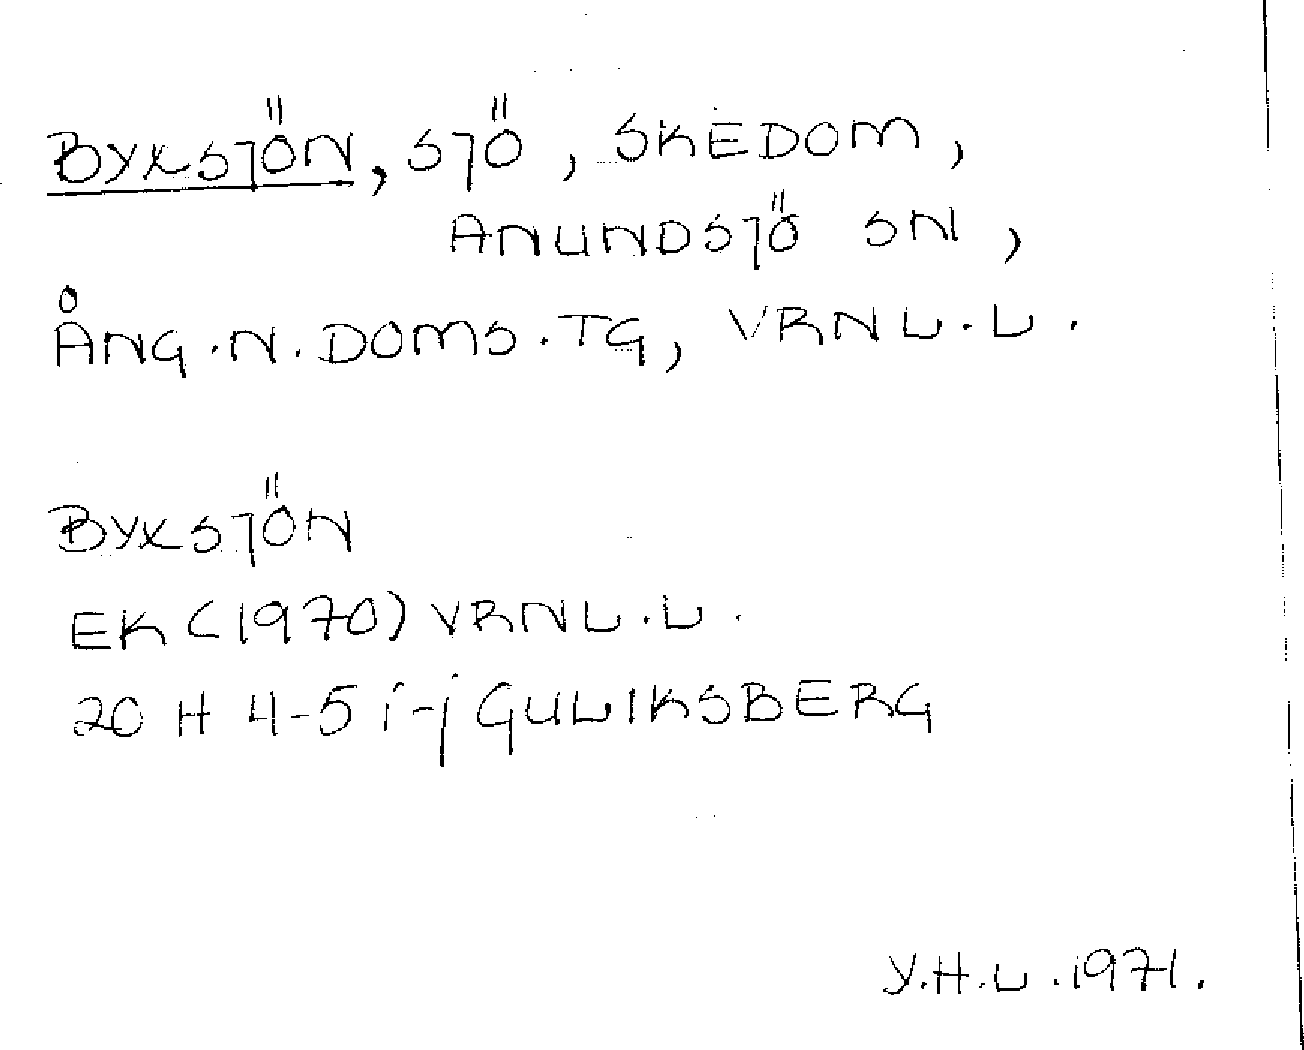 BYKSJÖN, SJÖ, SKEDOM,
ANUNDSJÖ SN,
ÅNG.N.DOMS.TG, VRNL.L.
BYKSJÖN
EK (1970) VRNL.L.
20 H 4-5 i-j GULLIKSBERG
Y.H.L. 1971.